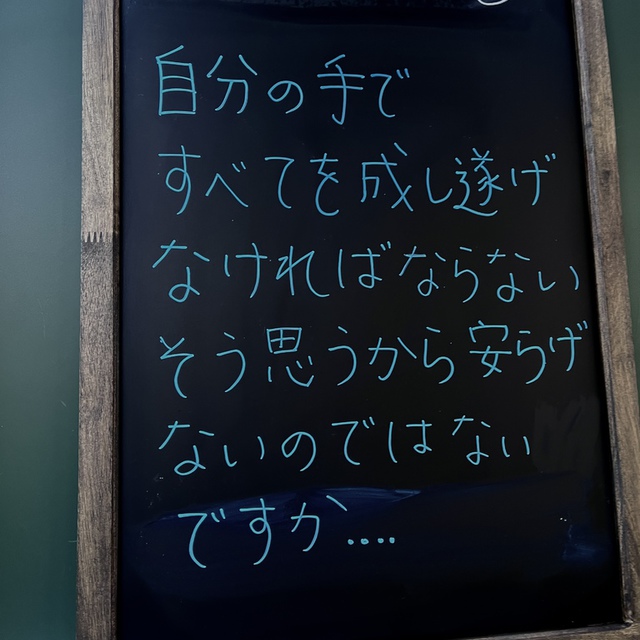 自分の手で
すべてを成し遂げ
なければならない
そう思うから安らげ
ないのではない
ですか....